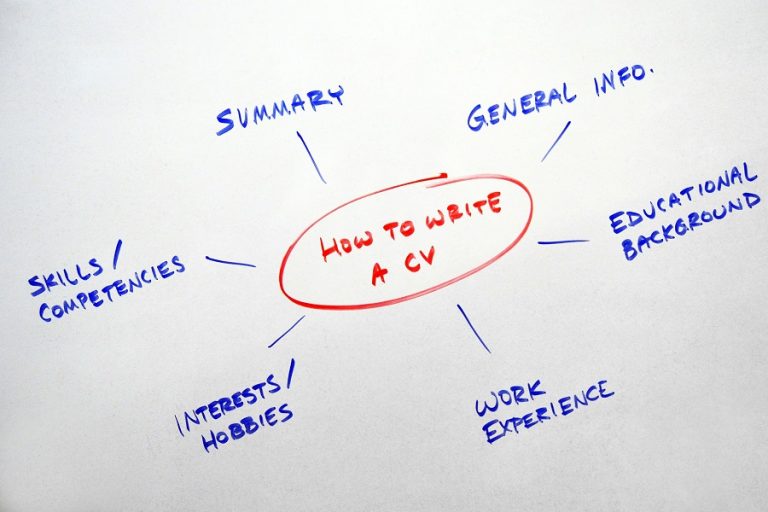 SUMMARY
GENERAL INFO.
HOW TO WRITE
A CV
EDUCATIONAL
BACKGROUND
SKILLS/
COMPETENCIES
INTERESTS/
HOBBIES
WORK
EXPERIENCE